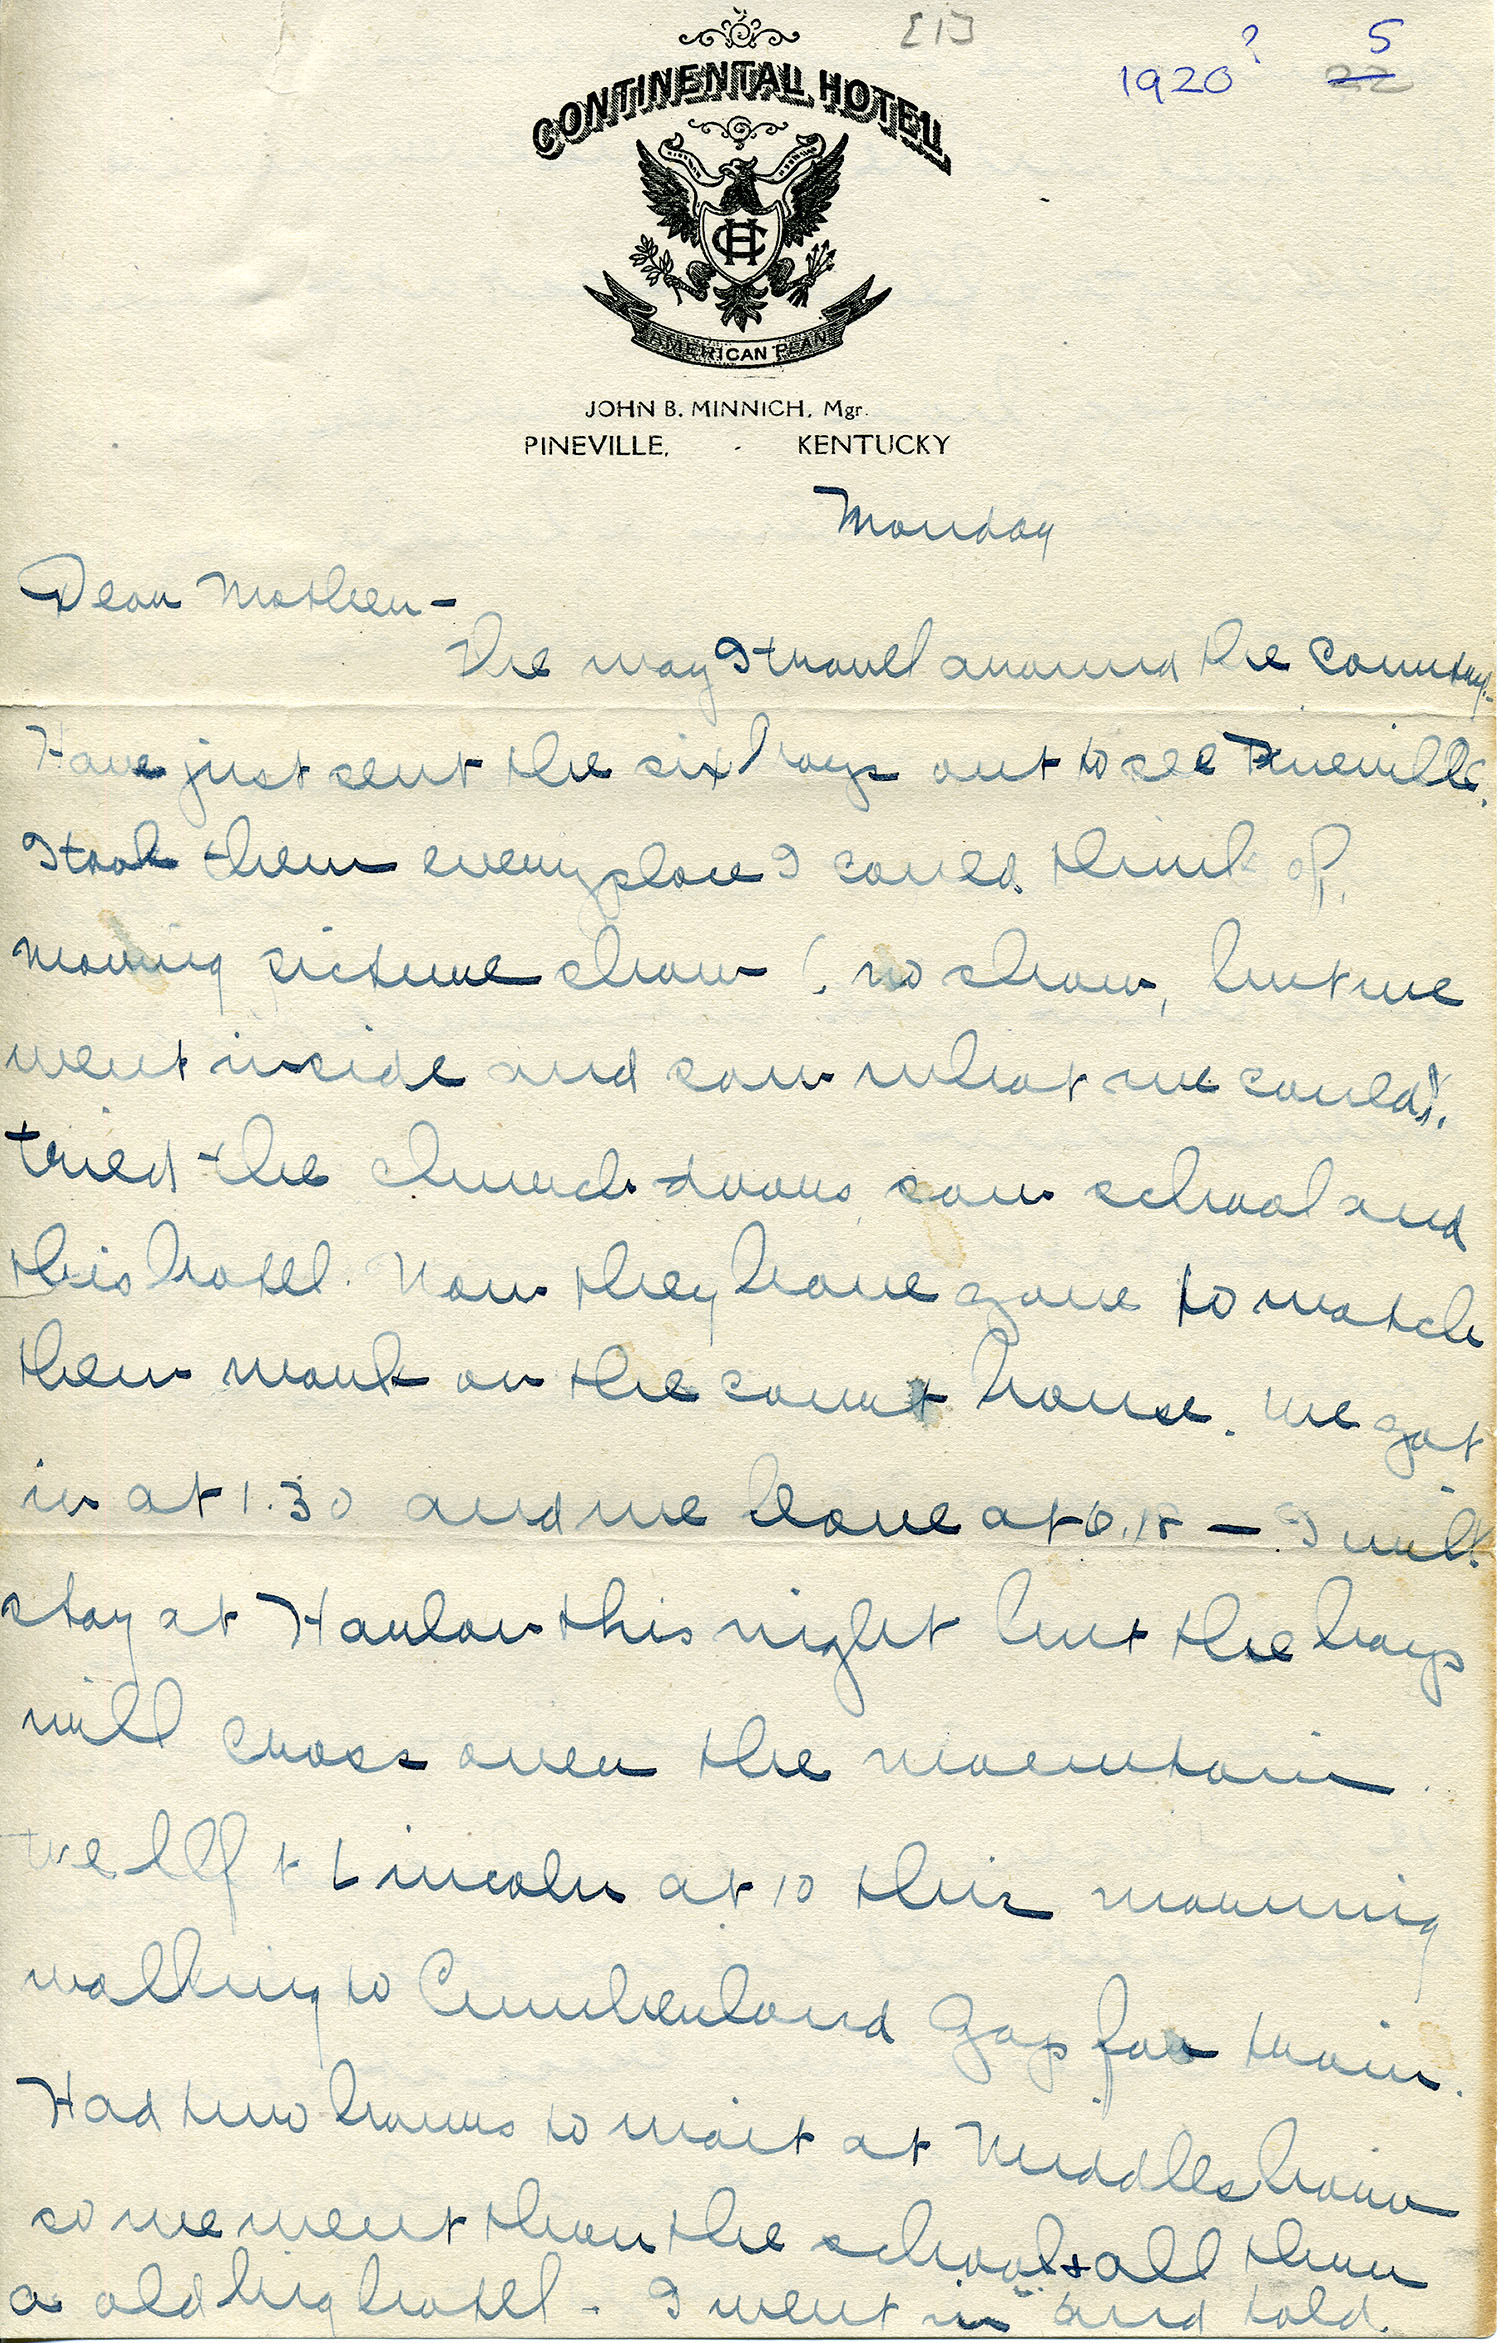 [1]
1920? 5
22
CONTINENTAL HOTEL
CH
AMERICAN PLAN
JOHN B. MINNICH, Mgr.
PINEVILLE, - KENTUCKY
Monday
Dear Mother -
The way I travel around the country.
Have just sent the six boys out to see Pineville.
I took them everyplace I could think of,
moving picture show (, no show, but we
went inside and saw what we could),
tried the church doors, saw school and
this hotel. Now they have gone to watch
them work on the court house. We got
in at 1.30 and we leave at 6.18 - I will
stay at Harlan this night but the boys
will cross over the mountain.
We left Lincoln at 10 this morning
walking to Cumberland Gap for train.
Had two hours to wait at Middlesboro
so we went thru the school & all thru
a old big hotel - I went in and told.